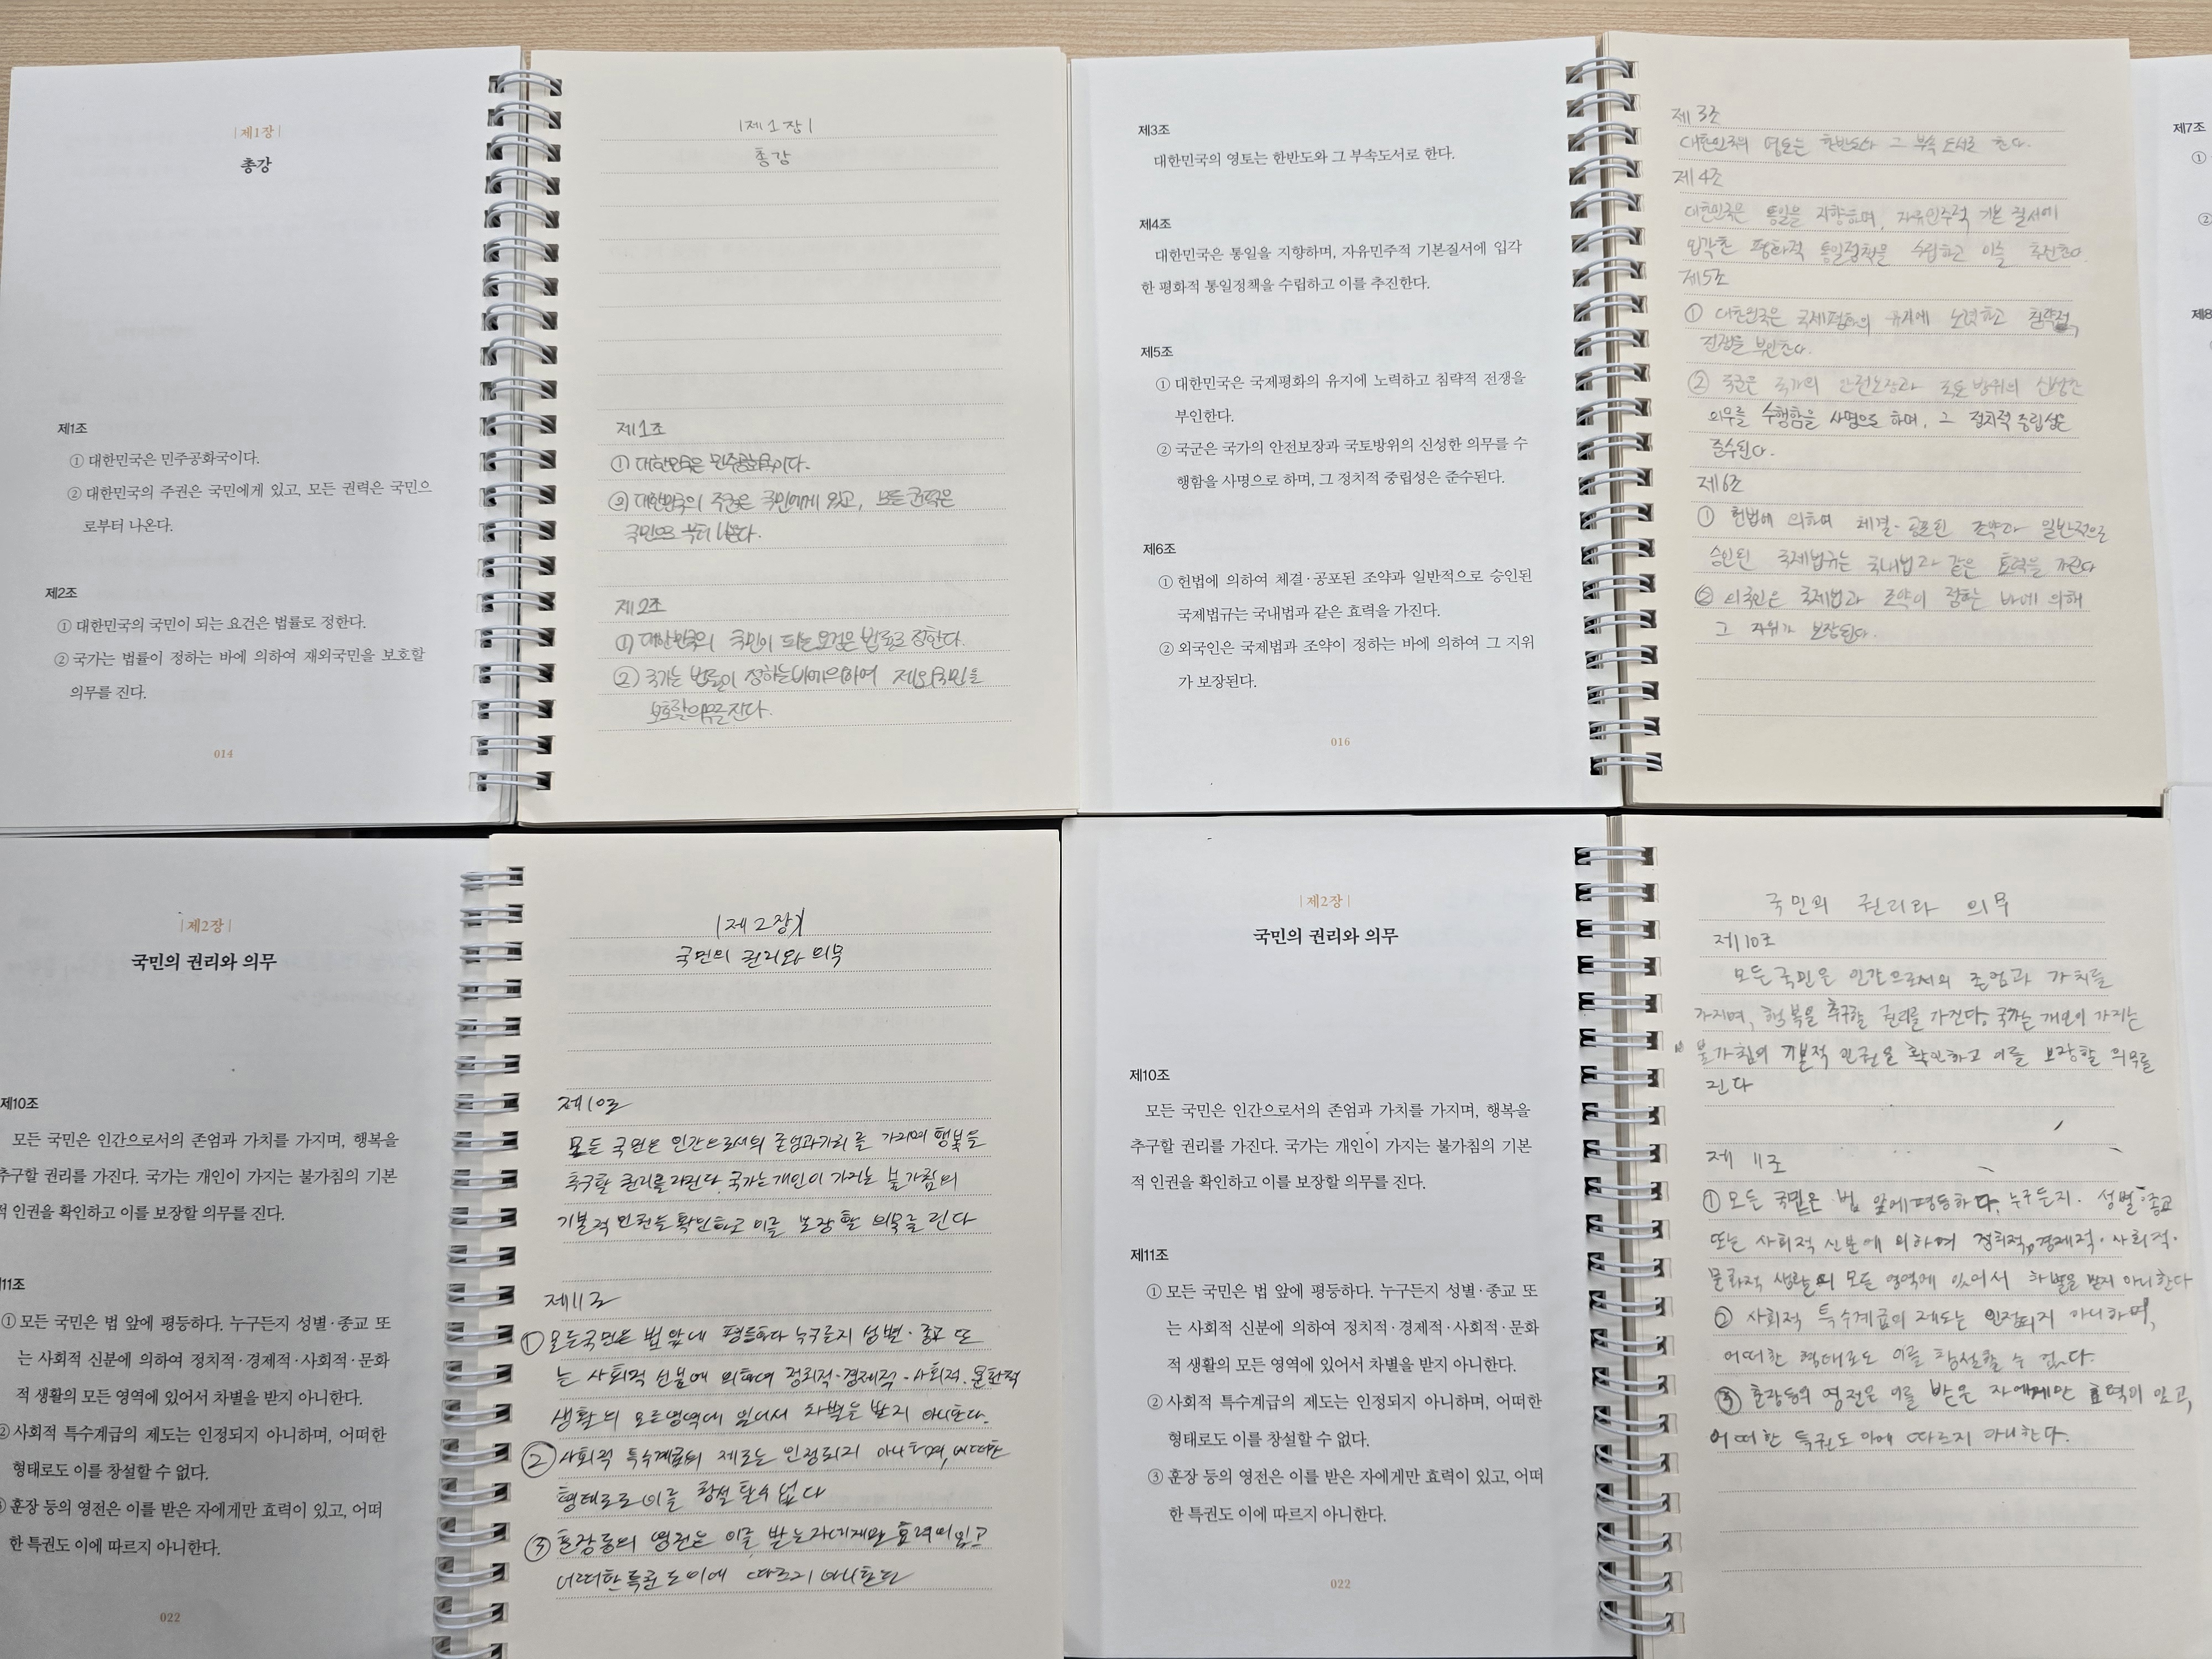 |제1장|
총강
제1조
① 대한민국은 민주공화국이다.
② 대한민국의 주권은 국민에게 있고, 모든 권력은 국민으
로부터 나온다.
제2조
① 대한민국의 국민이 되는 요건은 법률로 정한다.
② 국가는 법률이 정하는 바에 의하여 재외국민을 보호할
의무를 진다.
014
|제1장|
총강
제1조
① 대한민국은 민주공화국이다.
② 대한민국의 주권은 국민에게 있고, 모든 권력은
국민으로 부터 나온다.
제2조
① 대한민국의 국민이 되는 요건은 법률로 정한다.
② 국가는 법률이 정하는 바에 의하여 재외국민을
보호할 의무를 진다.
제3조
대한민국의 영토는 한반도와 그 부속도서로 한다.
제4조
대한민국은 통일을 지향하며, 자유민주적 기본질서에 입각
한 평화적 통일정책을 수립하고 이를 추진한다.
제5조
① 대한민국은 국제평화의 유지에 노력하고 침략적 전쟁을
부인한다.
② 국군은 국가의 안전보장과 국토방위의 신성한 의무를 수
행함을 사명으로 하며, 그 정치적 중립성은 준수된다.
제6조
① 헌법에 의하여 체결·공포된 조약과 일반적으로 승인된
국제법규는 국내법과 같은 효력을 가진다.
② 외국인은 국제법과 조약이 정하는 바에 의하여 그 지위
가 보장된다.
016
제3조
대한민국의 영토는 한반도와 그 부속 도서로 한다.
제4조
대한민국은 통일을 지향하며, 자유민주적 기본 질서에
입각한 평화적 통일정책을 수립하고 이를 추진한다.
제5조
① 대한민국은 국제평화의 유지에 노력하고 침략적
전쟁을 부인한다.
② 국군은 국가의 안전보장과 국토방위의 신성한
의무를 수행함을 사명으로 하며, 그 정치적 중립성은
준수된다.
제6조
① 헌법에 의하여 체결·공포된 조약과 일반적으로
승인된 국제법규는 국내법과 같은 효력을 가진다
② 외국인은 국제법과 조약이 정하는 바에 의해
그 지위가 보장된다.
제7조
①
②
제8
|제2장|
국민의 권리와 의무
제10조
모든 국민은 인간으로서의 존엄과 가치를 가지며, 행복을
추구할 권리를 가진다. 국가는 개인이 가지는 불가침의 기본
적 인권을 확인하고 이를 보장할 의무를 진다.
11조
① 모든 국민은 법 앞에 평등하다. 누구든지 성별·종교 또
는 사회적 신분에 의하여 정치적·경제적·사회적·문화
적 생활의 모든 영역에 있어서 차별을 받지 아니한다.
② 사회적 특수계급의 제도는 인정되지 아니하며, 어떠한
형태로도 이를 창설할 수 없다.
③ 훈장 등의 영전은 이를 받은 자에게만 효력이 있고, 어떠
한 특권도 이에 따르지 아니한다.
022
|제2장|
국민의 권리와 의무
제10조
모든 국민은 인간으로서의 존엄과가치를 가지며 행복을
추구할 권리를 가진다. 국가는 개인이 가지는 불가침의
기본적 인권을 확인하고 이를 보장할 의무를 진다
제11조
① 모든국민은 법 앞에 평등하다 누구든지 성별·종교 또
는 사회적 신분에 의하여 정치적·경제적·사회적·문화적
생활의 모든영역에 있어서 차별을 받지 아니한다.
② 사회적 특수계급의 제도는 인정되지 아니하며, 어떠한
형태로도 이를 창설 할수 없다
③ 훈장 등의 영전은 이를 받는자에게만 효력이있고
어떠한 특권도 이에 따르지 아니한다
|제2장|
국민의 권리와 의무
제10조
모든 국민은 인간으로서의 존엄과 가치를 가지며, 행복을
추구할 권리를 가진다. 국가는 개인이 가지는 불가침의 기본
적 인권을 확인하고 이를 보장할 의무를 진다.
제11조
① 모든 국민은 법 앞에 평등하다. 누구든지 성별·종교 또
는 사회적 신분에 의하여 정치적·경제적·사회적·문화
적 생활의 모든 영역에 있어서 차별을 받지 아니한다.
② 사회적 특수계급의 제도는 인정되지 아니하며, 어떠한
형태로도 이를 창설할 수 없다.
③ 훈장 등의 영전은 이를 받은 자에게만 효력이 있고, 어떠
한 특권도 이에 따르지 아니한다.
022
국민의 권리와 의무
제10조
모든 국민은 인간으로서의 존엄과 가치를
가지며, 행복을 추구할 권리를 가진다. 국가는 개인이 가지는
불가침의 기본적 인권을 확인하고 이를 보장할 의무를
진다
제 11조
① 모든 국민은 법 앞에 평등하다. 누구든지. 성별·종교
또는 사회적 신분에 의하여 정치적, 경제적·사회적·
문화적 생활의 모든 영역에 있어서 차별을 받지 아니한다
② 사회적 특수계급의 제도는 인정되지 아니하며,
어떠한 형태로도 이를 창설할 수 없다.
③ 훈장등의 영전은 이를 받은 자에게만 효력이 있고,
어떠한 특권도 이에 따르지 아니한다.